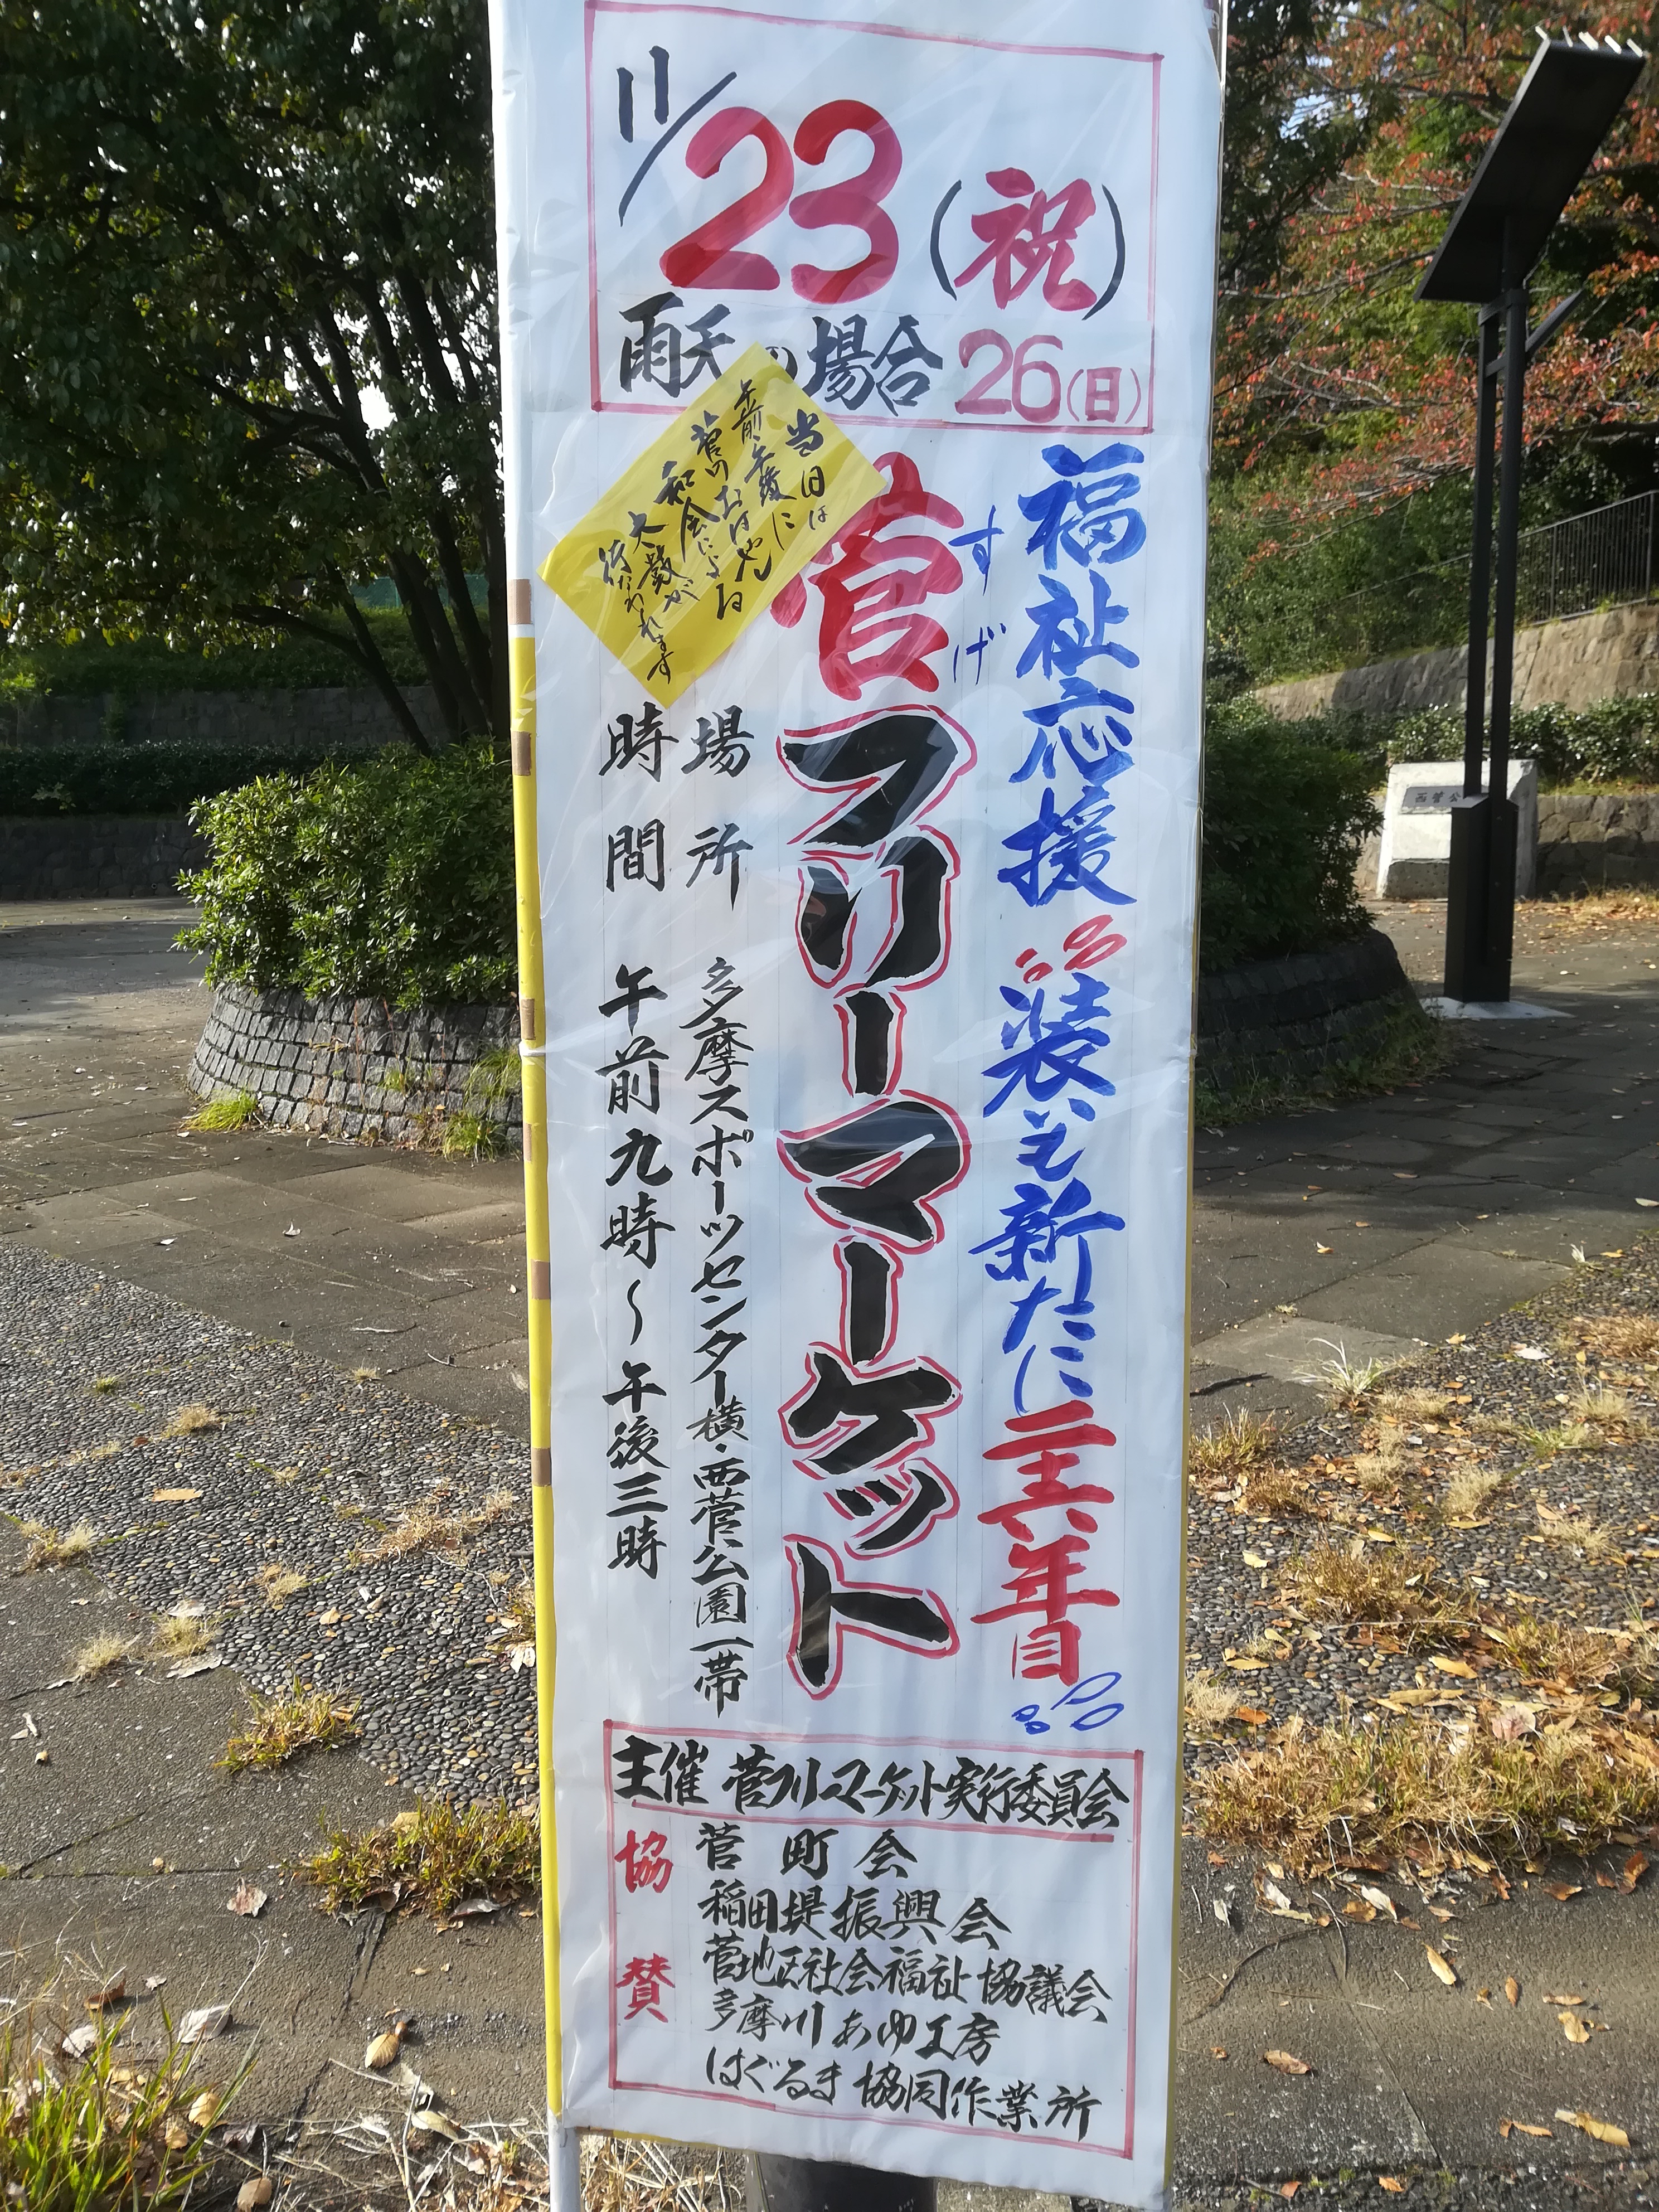 11/23(祝)
雨天の場合 26(日)
福祉応援 装いも新たに二十六年目
すげ
菅フリーマーケット
当日は
午前・午後に
菅のおはやし
和会による
太鼓が
行なわれます
場所 多摩スポーツセンター横・西菅公園一帯
時間 午前九時~午後三時
主催 菅フリーマーケット実行委員会
協賛
菅町会
稲田堤振興会
菅地区社会福祉協議会
多摩川あゆ工房
はぐるま協同作業所
西菅公